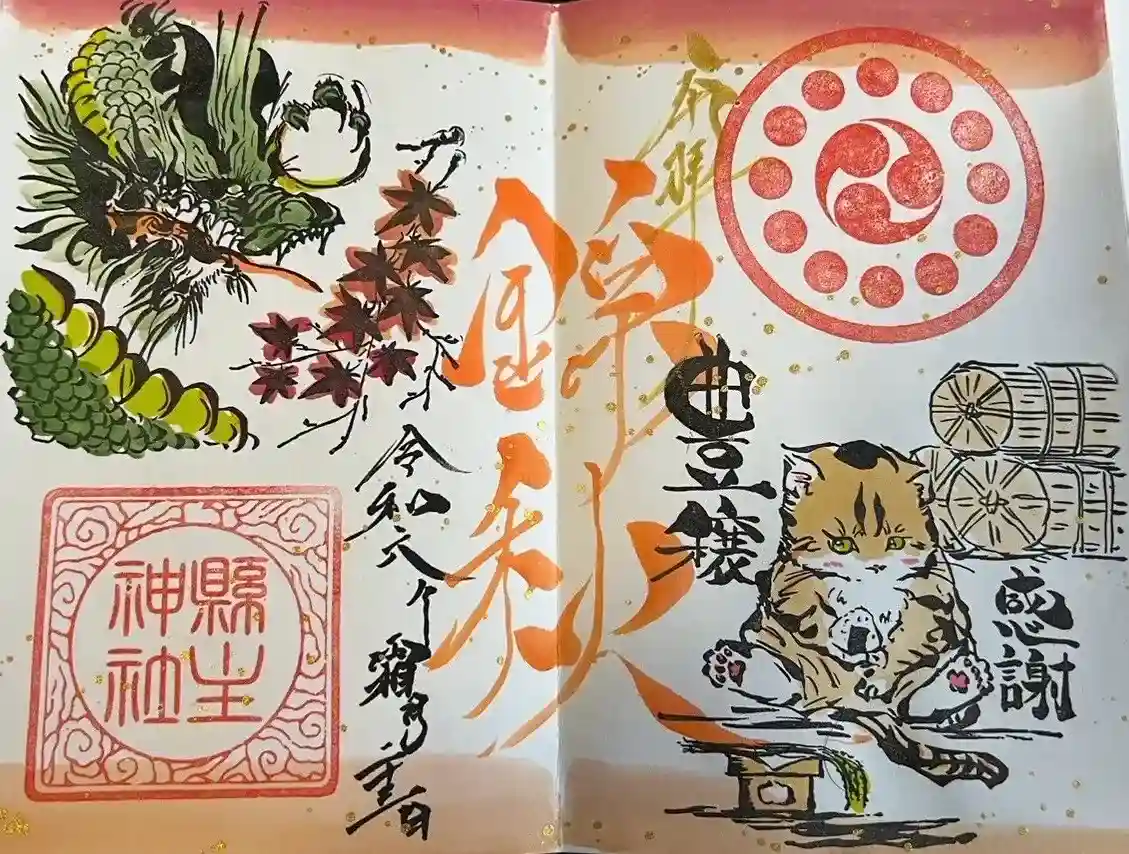 奉拝
豊穣
感謝
錦秋
令和六年霜月
縣主
神社